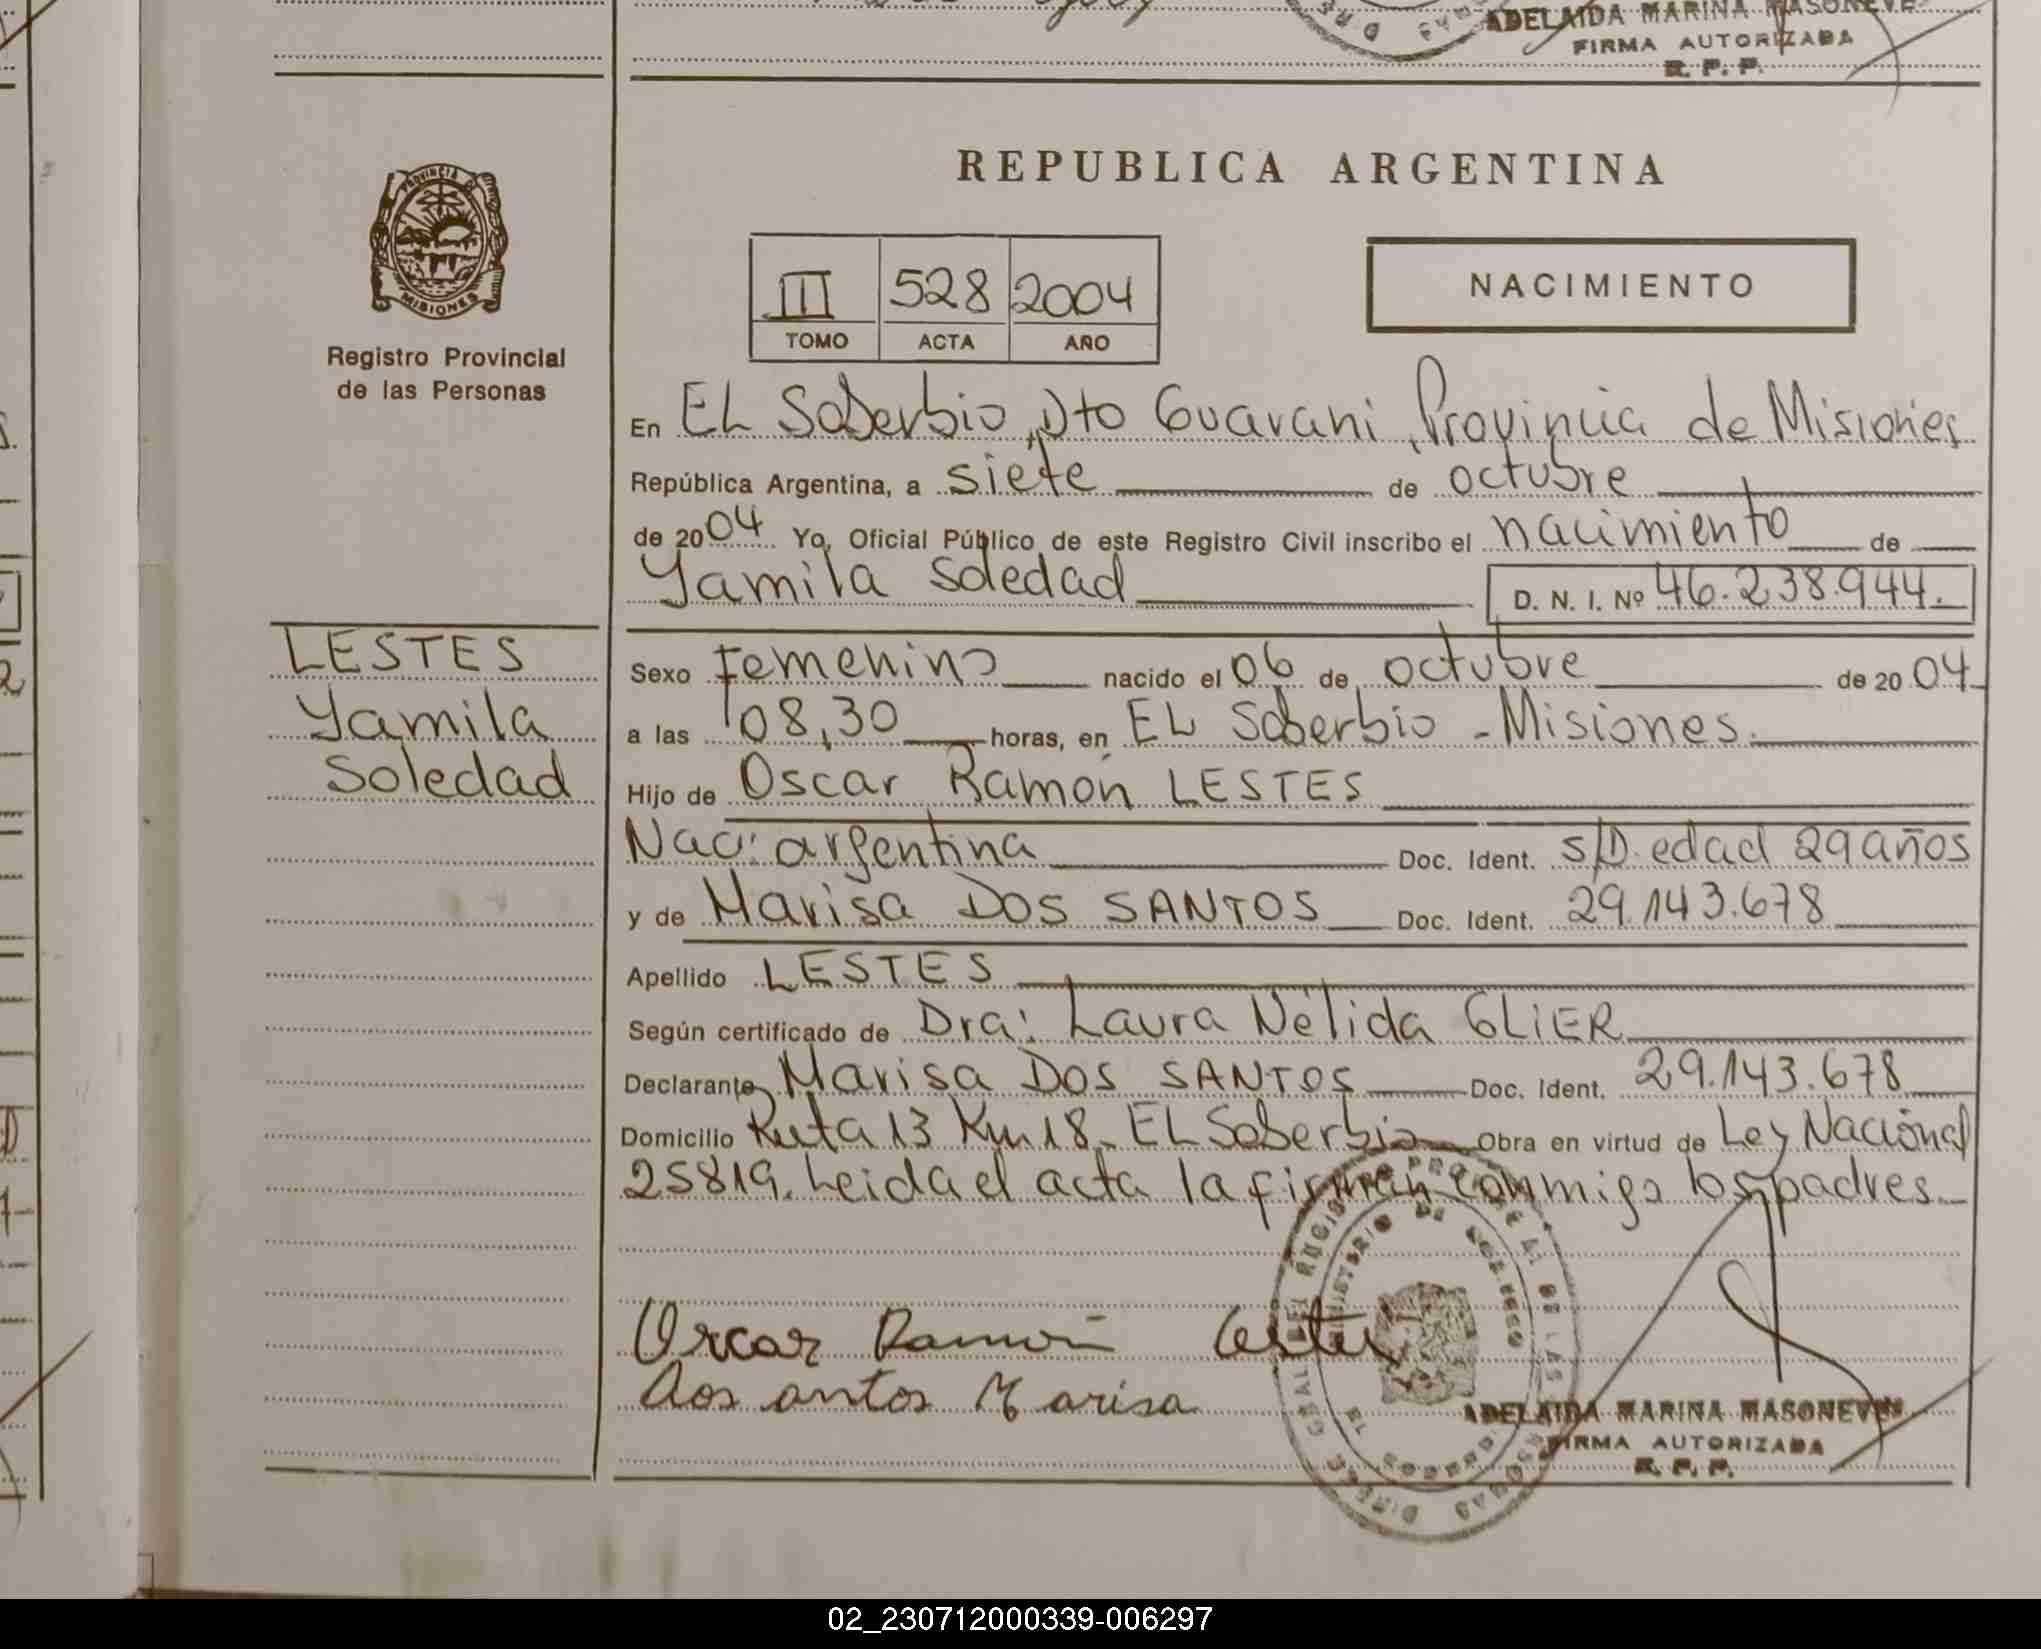 ADELAIDA MARINA MASONEVE
FIRMA AUTORIZADA
R. P. P.
PROVINCIA DE
MISIONES
Registro Provincial
de las Personas
REPUBLICA ARGENTINA
III 528 2004
TOMO ACTA AÑO
NACIMIENTO
En EL Soberbio, Dto Guarani, Provincia de Misiones
República Argentina, a siete de octubre
de 2004 Yo, Oficial Público de este Registro Civil inscribo el nacimiento de
Yamila Soledad D. N. I. Nº 46.238.944.
LESTES
Yamila
Soledad
Sexo Femenino nacido el 06 de octubre de 2004
a las 08,30 horas, en EL Soberbio - Misiones.
Hijo de Oscar Ramón LESTES
Nac: argentina Doc. Ident. S/D. edad 29 años
y de Marisa DOS SANTOS Doc. Ident. 29.143.678
Apellido LESTES
Según certificado de Dra: Laura Nélida GLIER
Declarante Marisa DOS SANTOS Doc. Ident. 29.143.678
Domicilio Ruta 13 Km 18. EL Soberbio Obra en virtud de Ley Nacional
25819. Leida el acta la firman conmigo los padres.
Oscar Ramón Lestes
Dos antos Marisa
ADELAIDA MARINA MASONEVE
FIRMA AUTORIZADA
R. P. P.
02_230712000339-006297